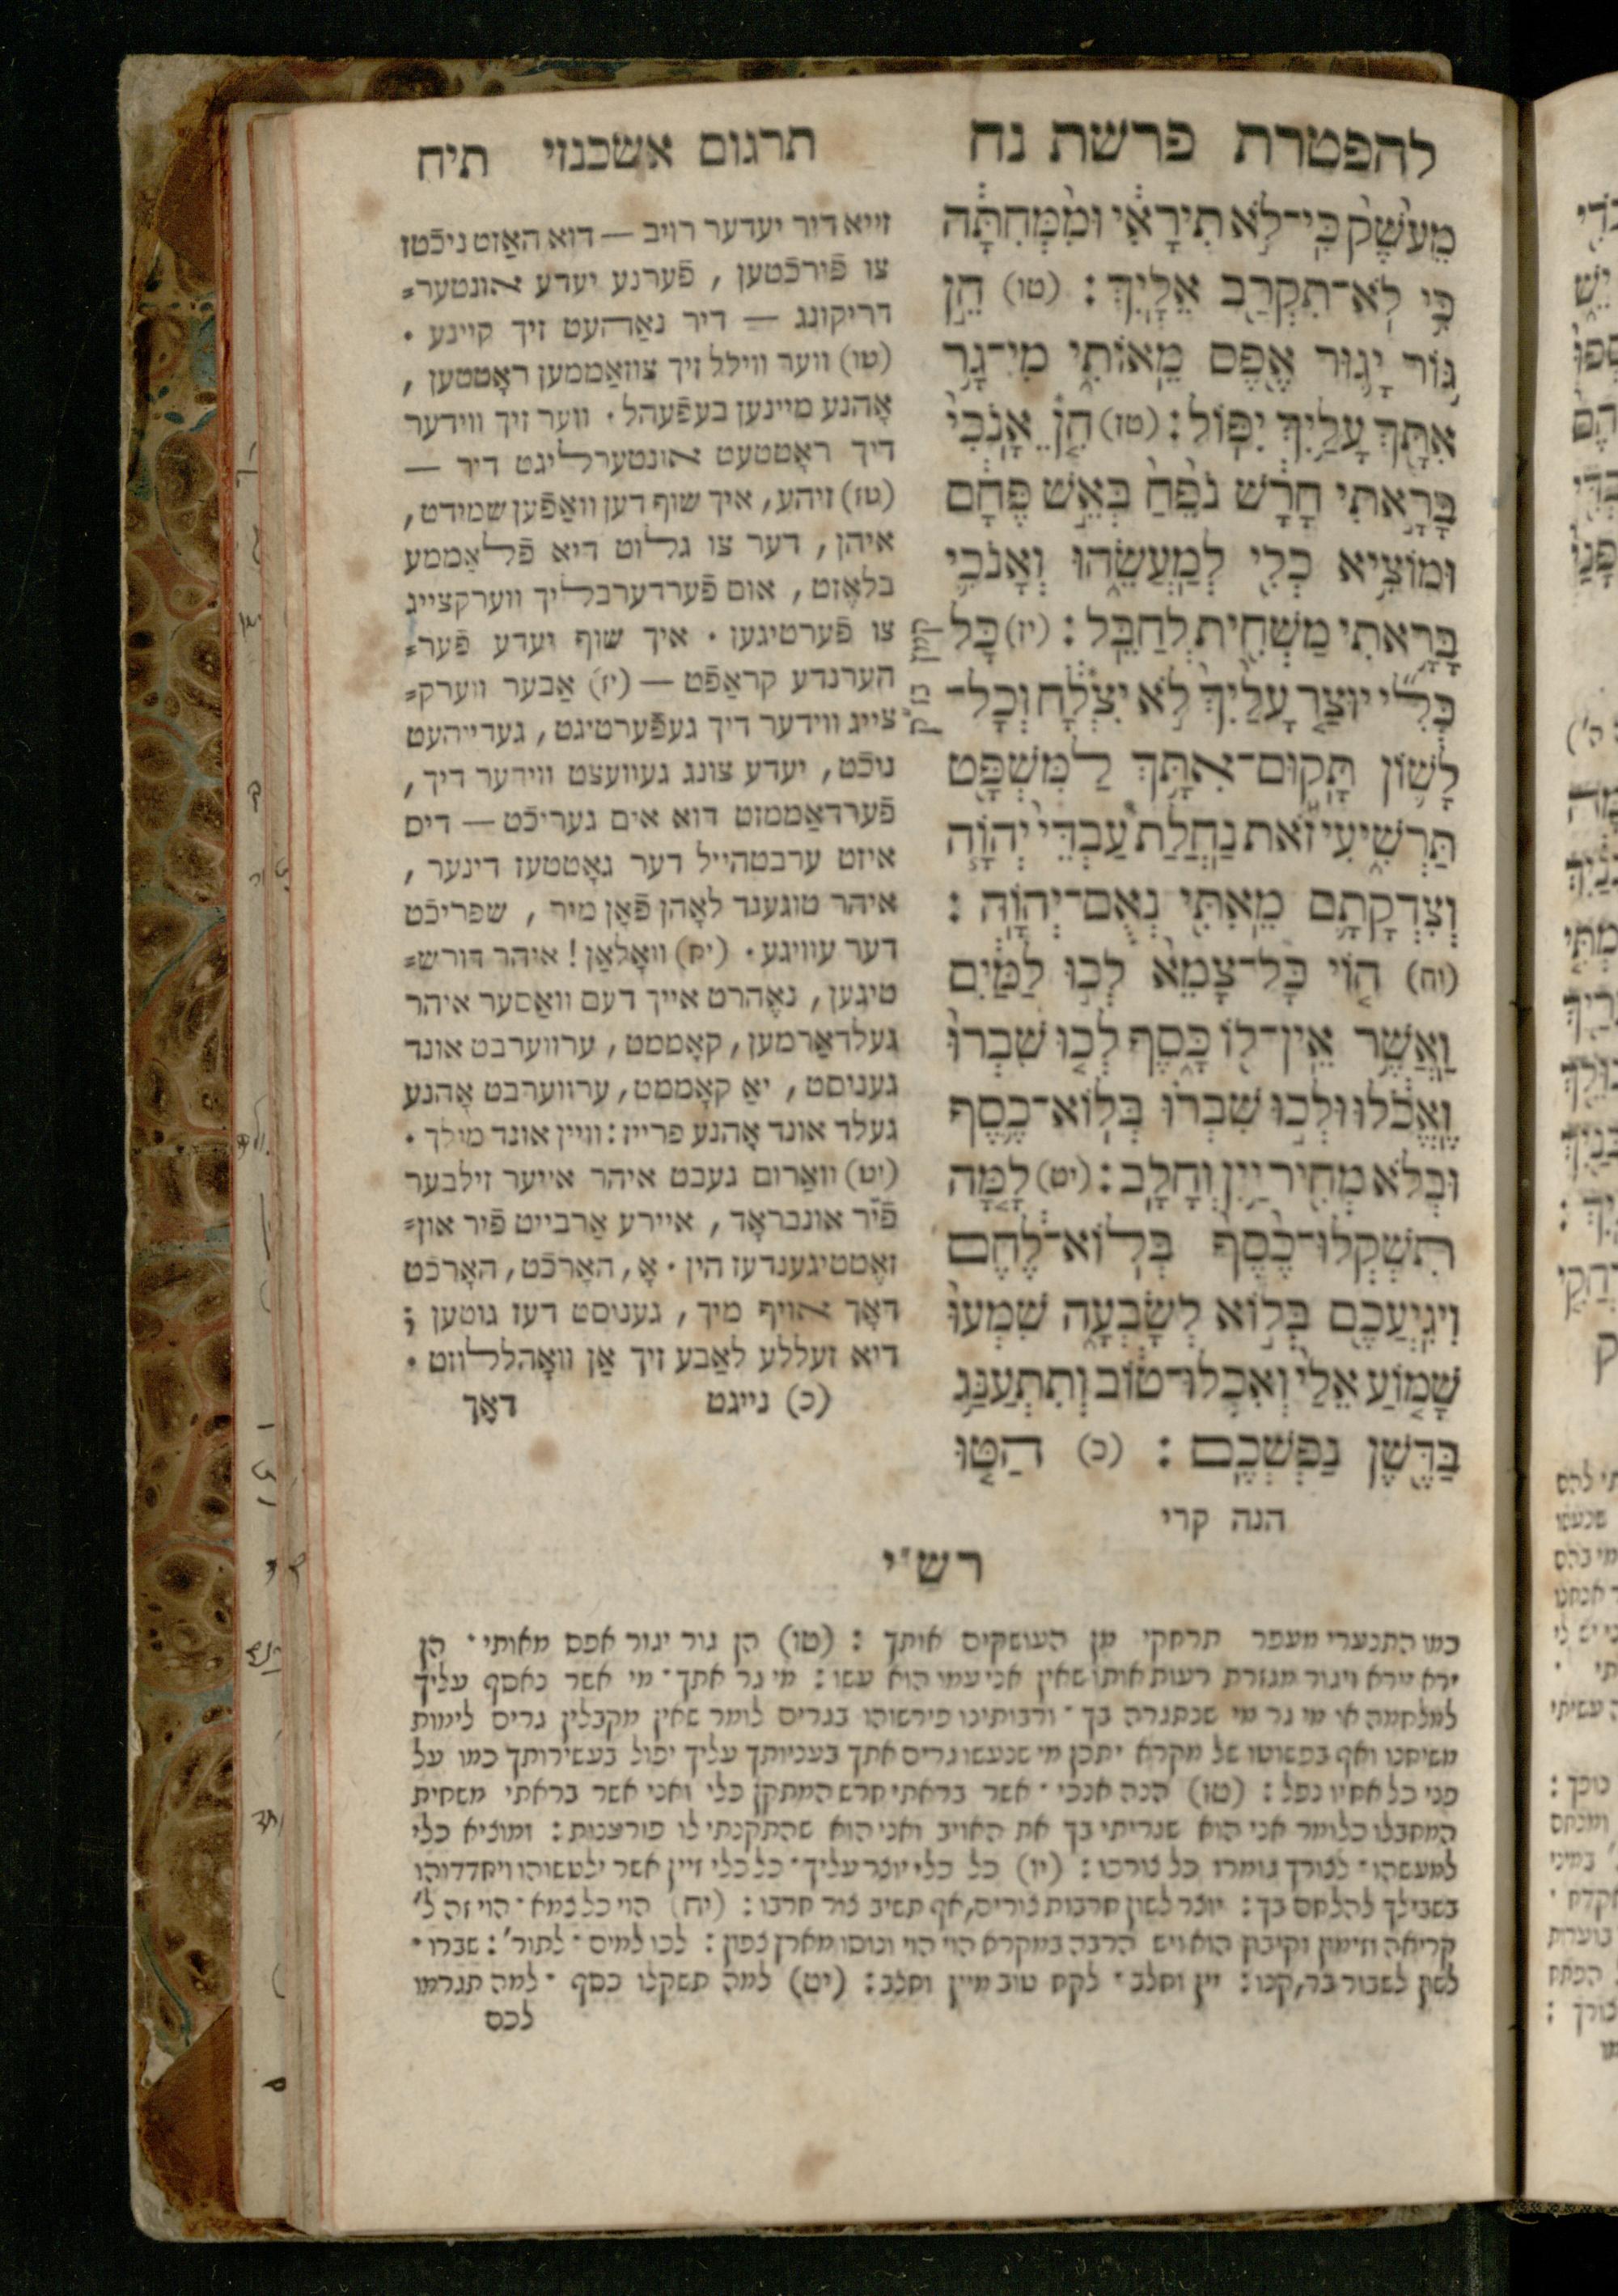 להפטרת פרשת נח
מֵעֹ֙שֶׁק֙ כִּֽי־לֹ֣א תִירָ֔אִי וּמִ֨מְּחִתָּ֔ה
כִּ֥י לֹֽא־תִקְרַ֖ב אֵלָֽיִךְ : (טו) הֵ֣ן
גּ֥וֹר יָג֛וּר אֶ֖פֶס מֵֽאוֹתִ֑י מִי־גָ֥ר
אִתָּ֖ךְ עָלַ֥יִךְ יִפּֽוֹל : (טז) הִ֤ן אָֽנֹכִי֙
בָּרָ֣אתִי חָרָ֔שׁ נֹפֵ֙חַ֙ בְּאֵ֣שׁ פֶּחָ֔ם
וּמוֹצִ֥יא כְלִ֖י לְמַֽעֲשֵׂ֑הוּ וְאָֽנֹכִ֛י
בָּרָ֥אתִי מַשְׁחִ֖ית לְחַבֵּֽל : (יז) כָּל
כְּלִ֞י יוּצַ֤ר עָלַ֙יִךְ֙ לֹ֣א יִצְלָ֔ח וְכָל־
לָשׁ֛וֹן תָּקֽוּם־אִתָּ֥ךְ לַמִּשְׁפָּ֖ט
תַּרְשִׁ֑יעִי זֹ֡את נַֽחֲלַת֩ עַבְדֵ֨י יְהוָ֧ה
וְצִדְקָתָ֛ם מֵֽאִתִּ֖י נְאֻם־יְהוָֽה :
(יח) ה֤וֹי כָּל־צָמֵא֙ לְכ֣וּ לַמַּ֔יִם
וַֽאֲשֶׁ֥ר אֵֽין־ל֖וֹ כָּ֑סֶף לְכ֤וּ שִׁבְרוּ֙
וֶֽאֱכֹ֔לוּ וּלְכ֣וּ שִׁבְר֗וּ בְּלוֹא־כֶ֛סֶף
וּבְל֥וֹא מְחִ֖יר יַ֥יִן וְחָלָֽב : (יט) לָ֤מָּה
תִשְׁקְלוּ־כֶ֙סֶף֙ בְּֽלוֹא־לֶ֔חֶם
וִיגִֽיעֲכֶ֖ם בְּל֣וֹא לְשָׂבְעָ֑ה שִׁמְע֨וּ
שָׁמ֤וֹעַ אֵלַי֙ וְאִכְלוּ־ט֔וֹב וְתִתְעַנַּ֥ג
בַּדֶּ֖שֶׁן נַפְשְׁכֶֽם : (כ) הַטּ֤וּ
הנה קרי
קמץ בז״ק
תרגום אשכנזי תיח
זייא דיר יעדער רויב — דוא האַזט ניכֿטז
צו פֿירכֿטען , פֿערנע יעדע אונטער⸗
דריקונג — דיר נאַהעט זיך קיינע ·
(טו) ווער ווילל זיך צוזאַממען ראָטטען ,
אָהנע מיינען בעפֿעהל · ווער זיך ווידער
דיך ראָטטעט אונטערליגט דיר —
(טז) זיהע, איך שוף דען וואַפֿען שמידט,
איהן , דער צו גלוט דיא פֿלאַממע
בלאֶזט , אום פֿערדערבליך ווערקצייג
צו פֿערטיגען · איך שוף יעדע פֿער⸗
הערנדע קראַפֿט — (יז) אַבער ווערק⸗
צייג ווידער דיך געפֿערטיגט, געדייהעט
ניכֿט, יעדע צונג געוועצט ווידער דיך ,
פֿערדאַממזט דוא אים געריכֿט — דיס
איזט ערבטהייל דער גאָטטעז דינער ,
איהר טוגענד לאָהן פֿאָן מיר , שפריכֿט
דער עוויגע · (יח) וואָלאַן ! איהר דורש⸗
טיגען, נאֶהרט אייך דעם וואַסער איהר
געלדאַרמען, קאָממט, ערווערבט אונד
געניסט, יאַ קאָממט, ערווערבט אָהנע
געלד אונד אָהנע פרייז : וויין אונד מילך ·
(יט) וואַרום געבט איהר אייער זילבער
פֿיר אונבראָד, אייערע אַרבייט פֿיר אונ⸗
זאֶטטיגענדעז הין · אָ, האָרכֿט, האָרכֿט
דאָך אויף מיך, געניסט דעז גוטען ;
דיא זעללע לאַבע זיך אַן וואָהללוזט ·
(כ) נייגט דאָך
רש״י
כמו התנערי מעפר תרחקי מן העושקים אותך : (טו) הן גור יגור אפס מאותי · הן
ירא יירא ויגור מגזרת רעות אותו שאין אני עמו הוא עשו : מי גר אתך · מי אשר נאסף עליך
למלחמה או מי גר מי שנתגרה בך · ורבותינו פירשוהו בגרים לומר שאין מקבלין גרים לימות
משיחנו ואף בפשוטו של מקרא יתכן מי שנעשו גרים אתך בעניותך עליך יפול בעשירותך כמו על
פני כל אחיו נפל : (טז) הנה אנכי · אשר בראתי חרש המתקן כלי ואני אשר בראתי משחית
המחבלו כלומר אני הוא שגריתי בך את האויב ואני הוא שהתקנתי לו פורענות : ומוציא כלי
למעשהו · לצורך גומרו כל צורכו : (יז) כל כלי יוצר עליך · כל כלי זיין אשר ילטשוהו ויחדדוהו
בשבילך להלחם בך : יוצר לשון חרבות צורים, אף תשיב צור חרבו : (יח) הוי כל צמא · הוי זה ל׳
קריאה וזימון וקיבוץ הוא ויש הרבה במקרא הוי הוי ונוסו מארץ צפון : לכו למים · לתור׳ : שברו ·
לשון לשבור בר, קנו : יין וחלב · לקח טוב מיין וחלב : (יט) למה תשקלו כסף · למה תגרמו
לכם